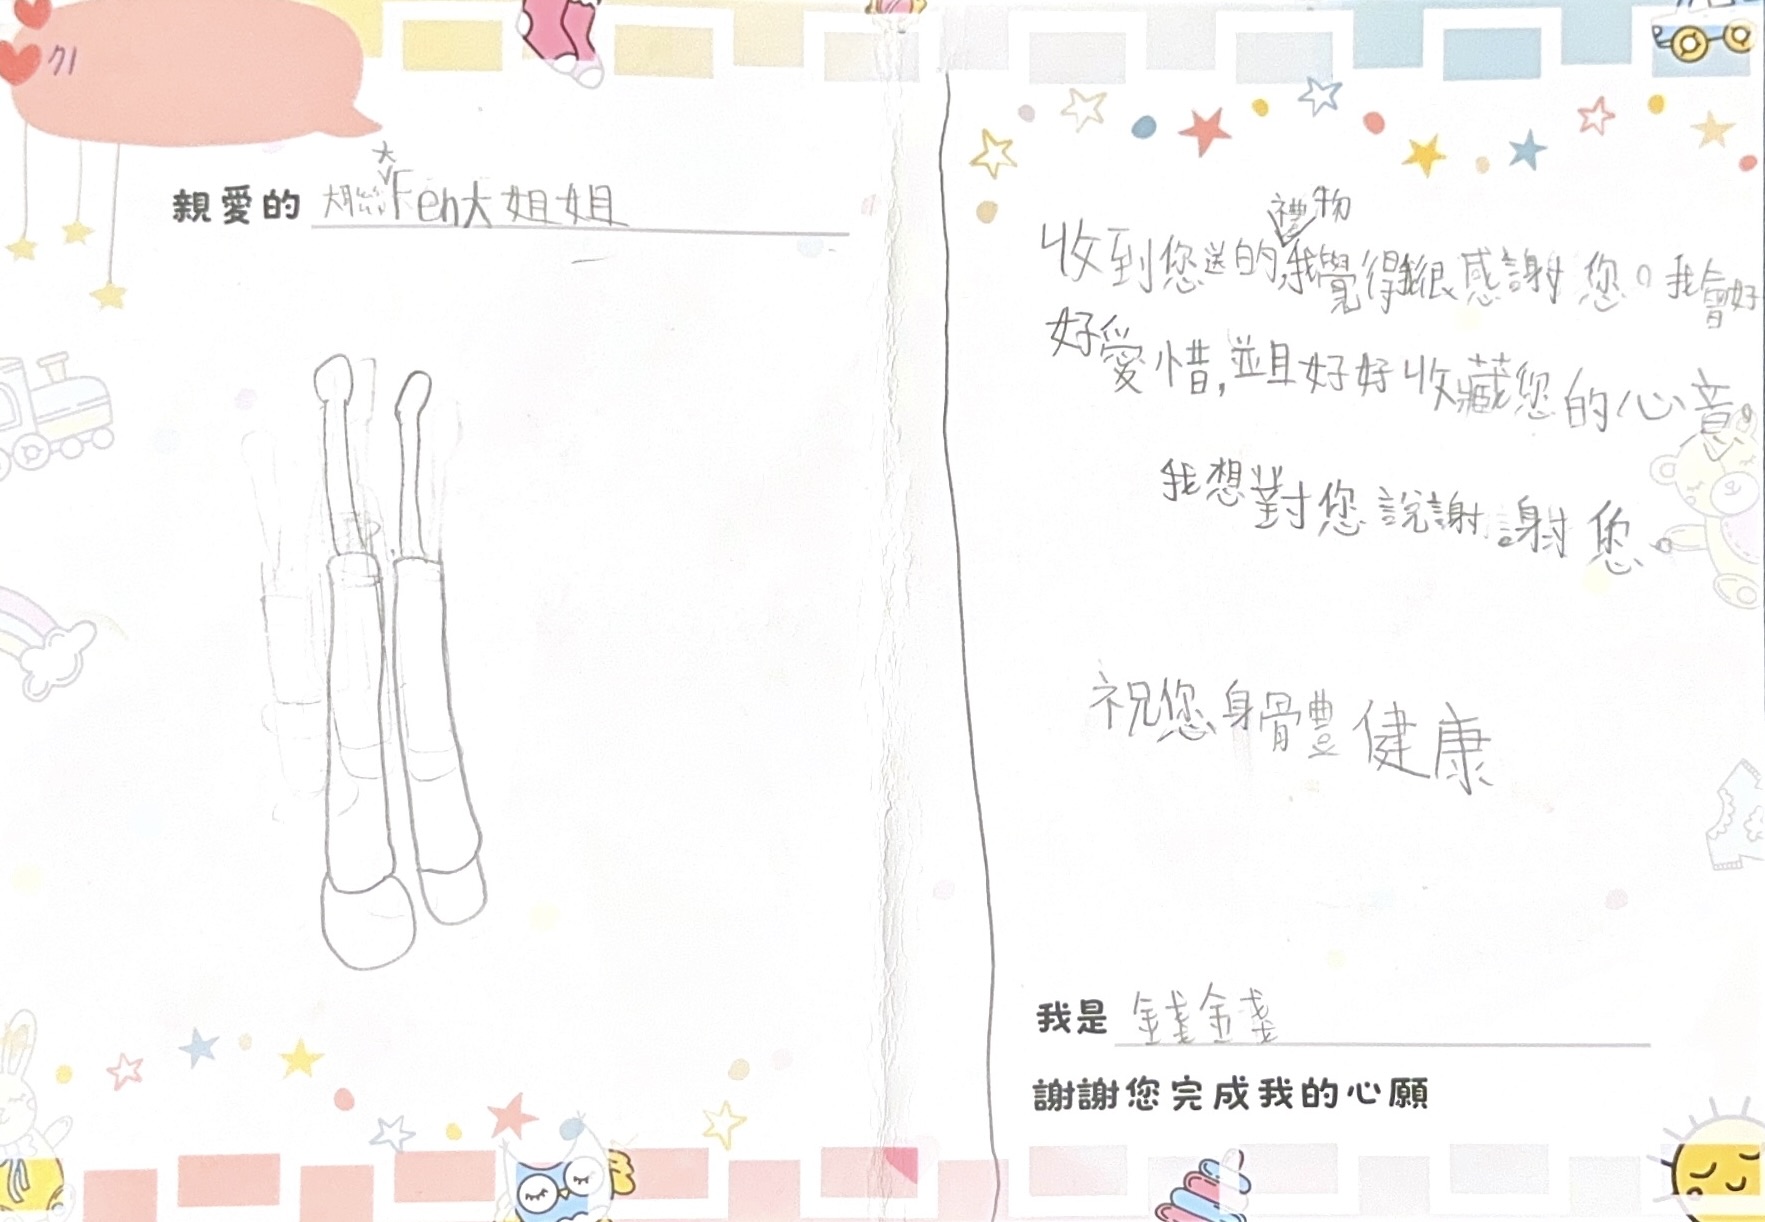 71
大
親愛的 Fen大姐姐
禮物
收到您送的,我覺得我很感謝您。我會好
好愛惜,並且好好收藏您的心意。
我想對您說謝謝您。
祝您身體健康
我是 錢錢
謝謝您完成我的心願